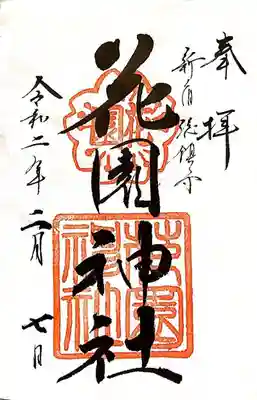 奉拝
新宿総鎮守
花園神社
令和二年二月七日
花園神社